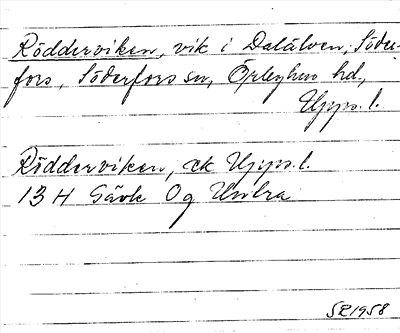 Rödderviken, vik i Dalälven, Söder-
fors, Söderfors sn, Örbyhus hd,
Upps. l.
Rödderviken, ek Upps. l.
13 H Gävle 0g Untra
SR 1958